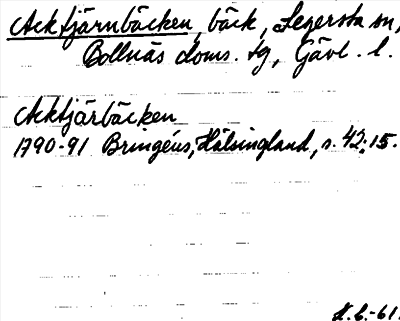 Acktjärnbäcken, bäck, Segersta sn,
Bollnäs doms. tg, Gävl. l.
Acktjärbäcken
1790-91 Bringéus, Hälsingland, s. 42; 15.
H.C.-61.